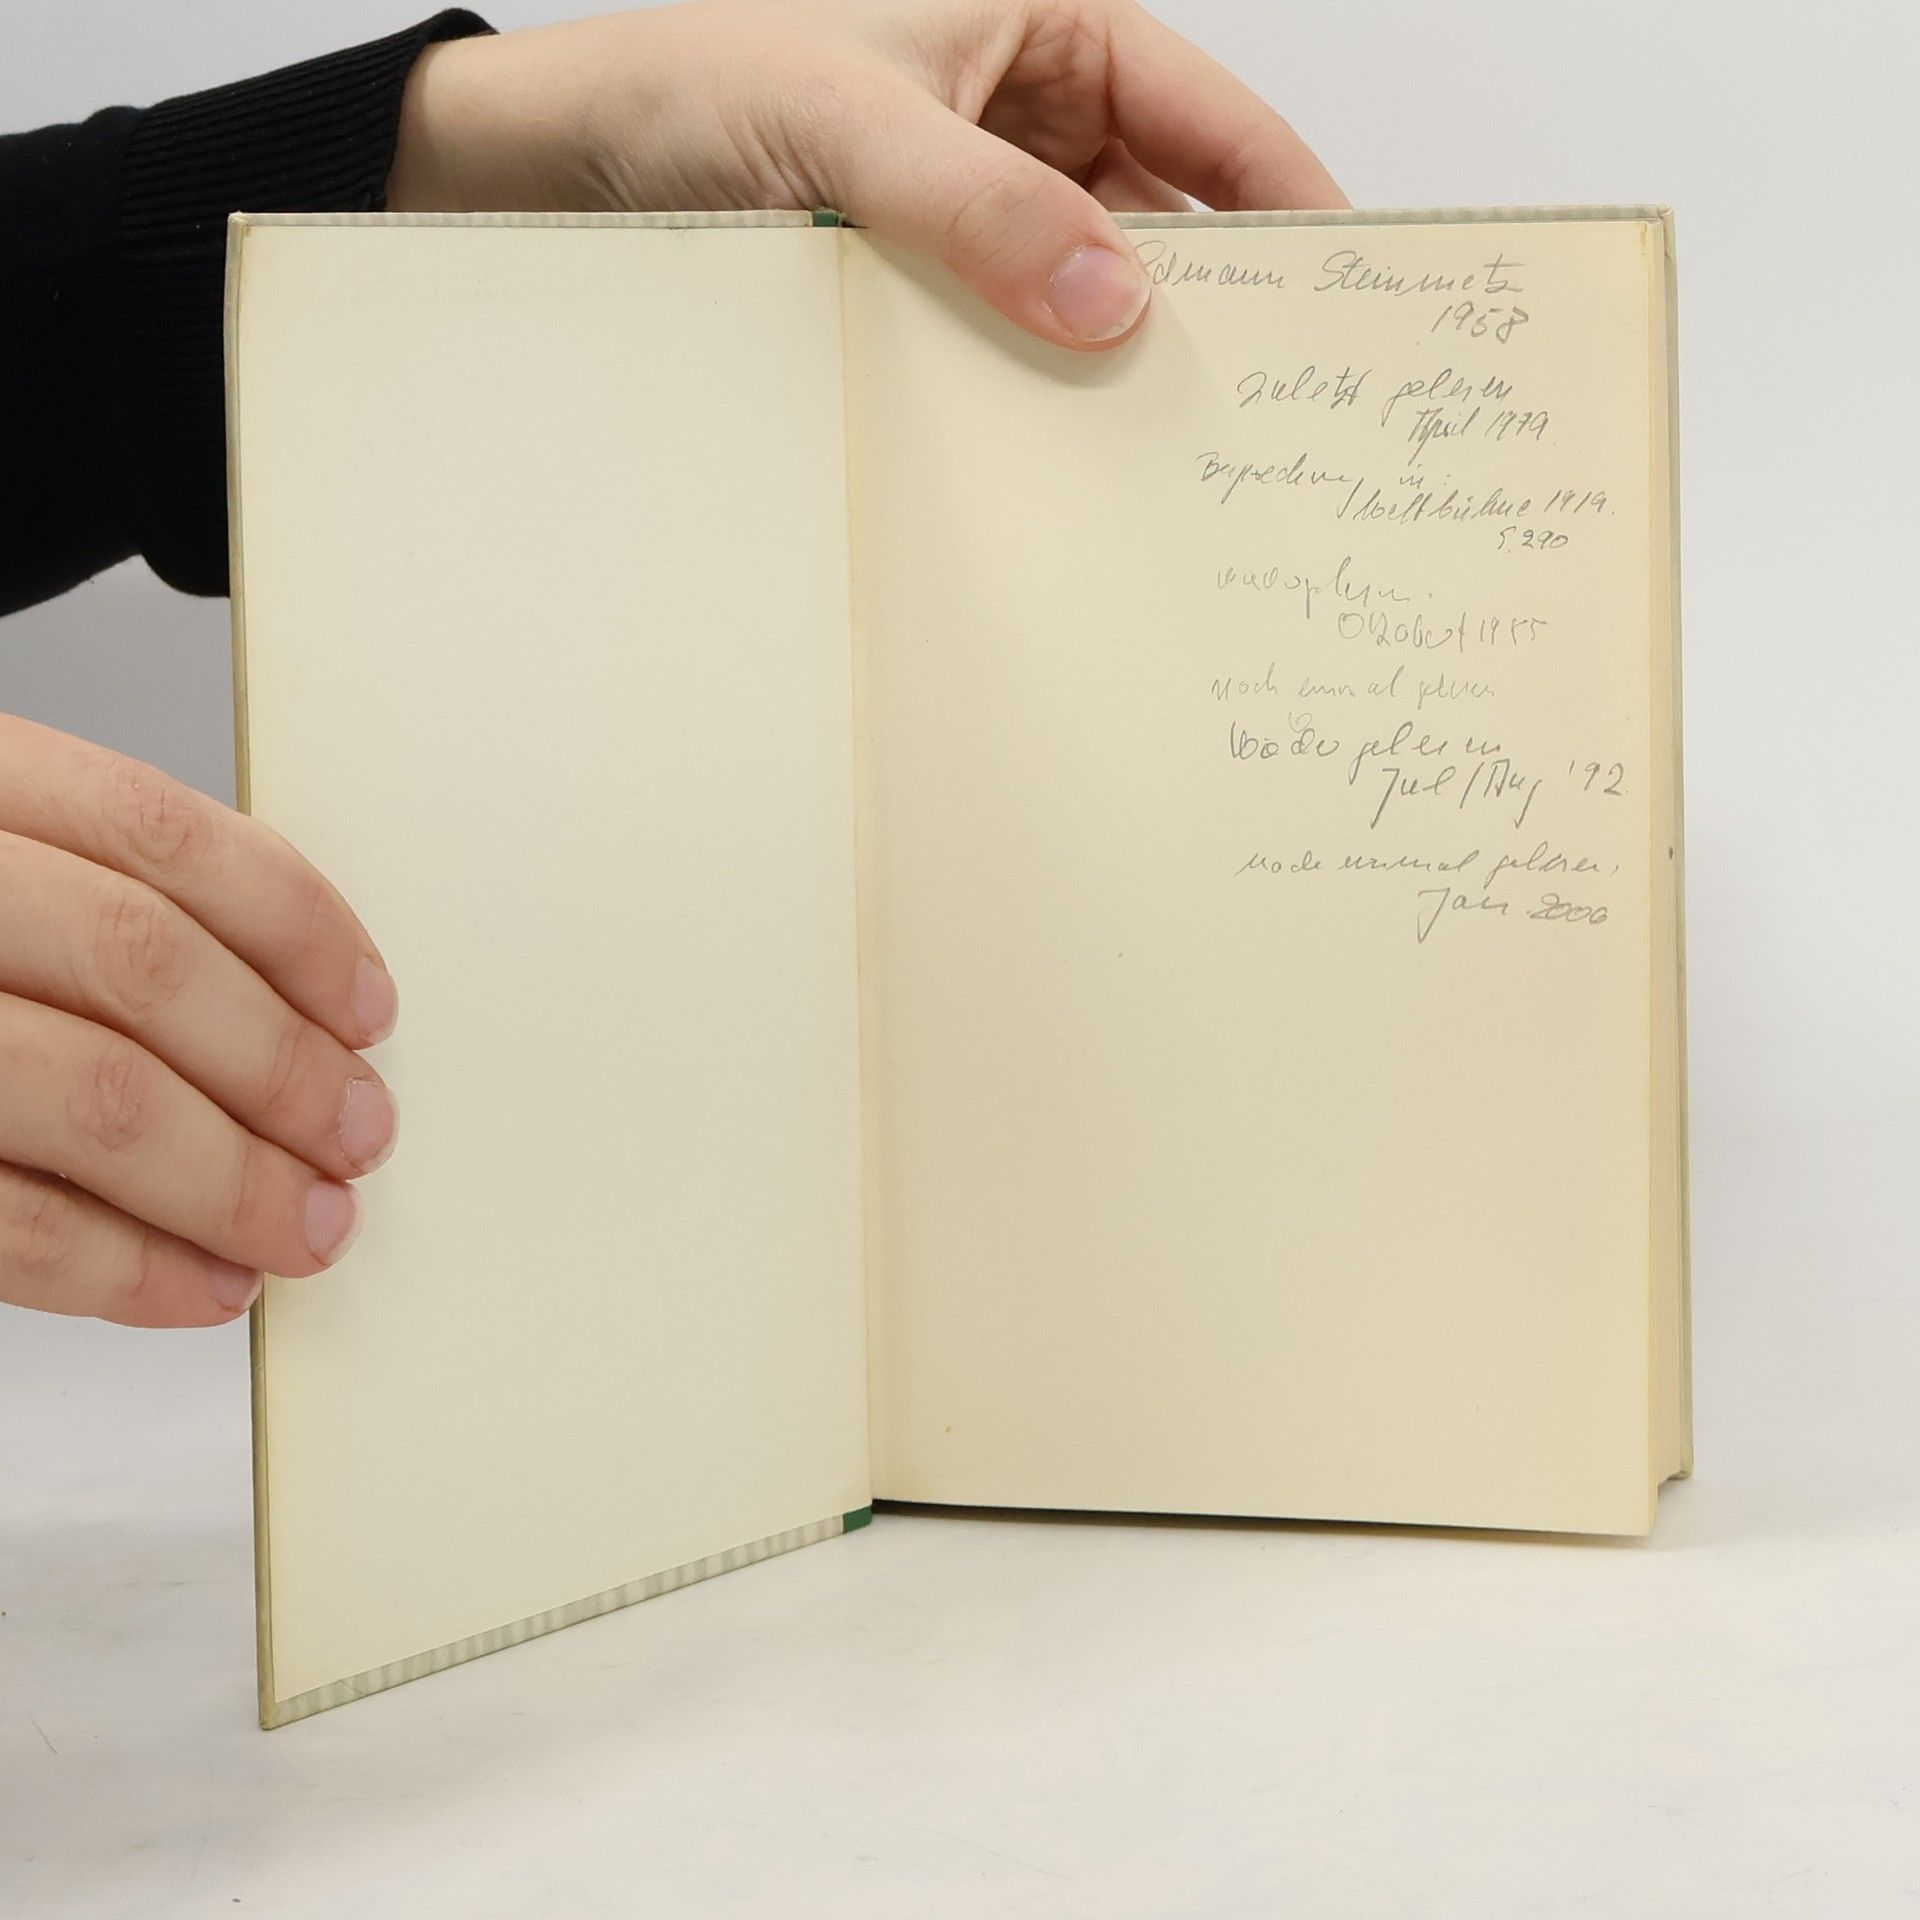 Erdmann Steinmetz
1958
zuletzt gelesen
April 1979
Besprechung in:
Weltbühne 1919.
S. 290
wieder gelesen.
Oktober 1985
noch einmal gelesen
wieder gelesen
Jul/Aug '92.
noch einmal gelesen.
Jan. 2006